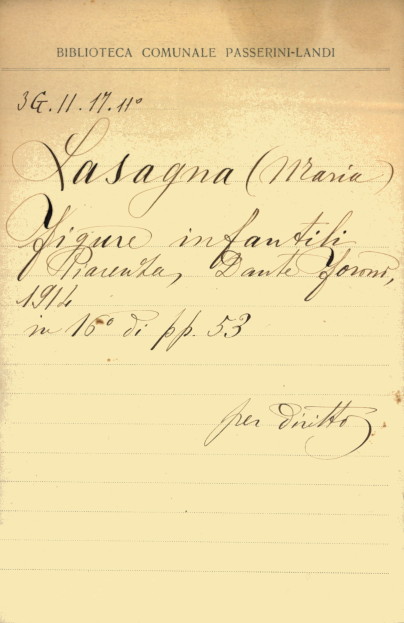 BIBLIOTECA COMUNALE PASSERINI-LANDI
3G.II.17.11º
Lasagna (Maria)
Figure infantili
Piacenza, Dante Foroni,
1914
in 16º di pp. 53
per diritto